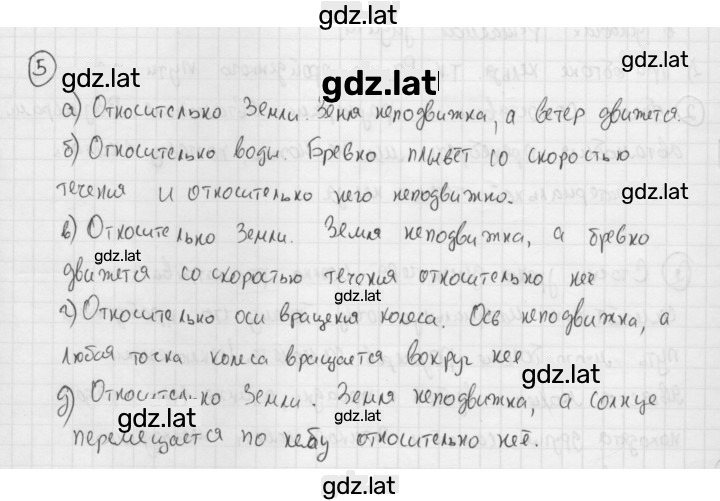 gdz.lat
5
gdz.lat
gdz.lat
а) Относительно Земли. Земля неподвижна, а ветер движется.
б) Относительно воды. Бревно плывёт со скоростью
течения и относительно него неподвижно.
в) Относительно Земли. Земля неподвижна, а бревно
gdz.lat
движется со скоростью течения относительно неё
gdz.lat
г) Относительно оси вращения колеса. Ось неподвижна, а
любая точка колеса вращается вокруг неё
gdz.lat
д) Относительно Земли. Земля неподвижна, а солнце
gdz.lat
gdz.lat
перемещается по небу относительно неё.
gdz.lat